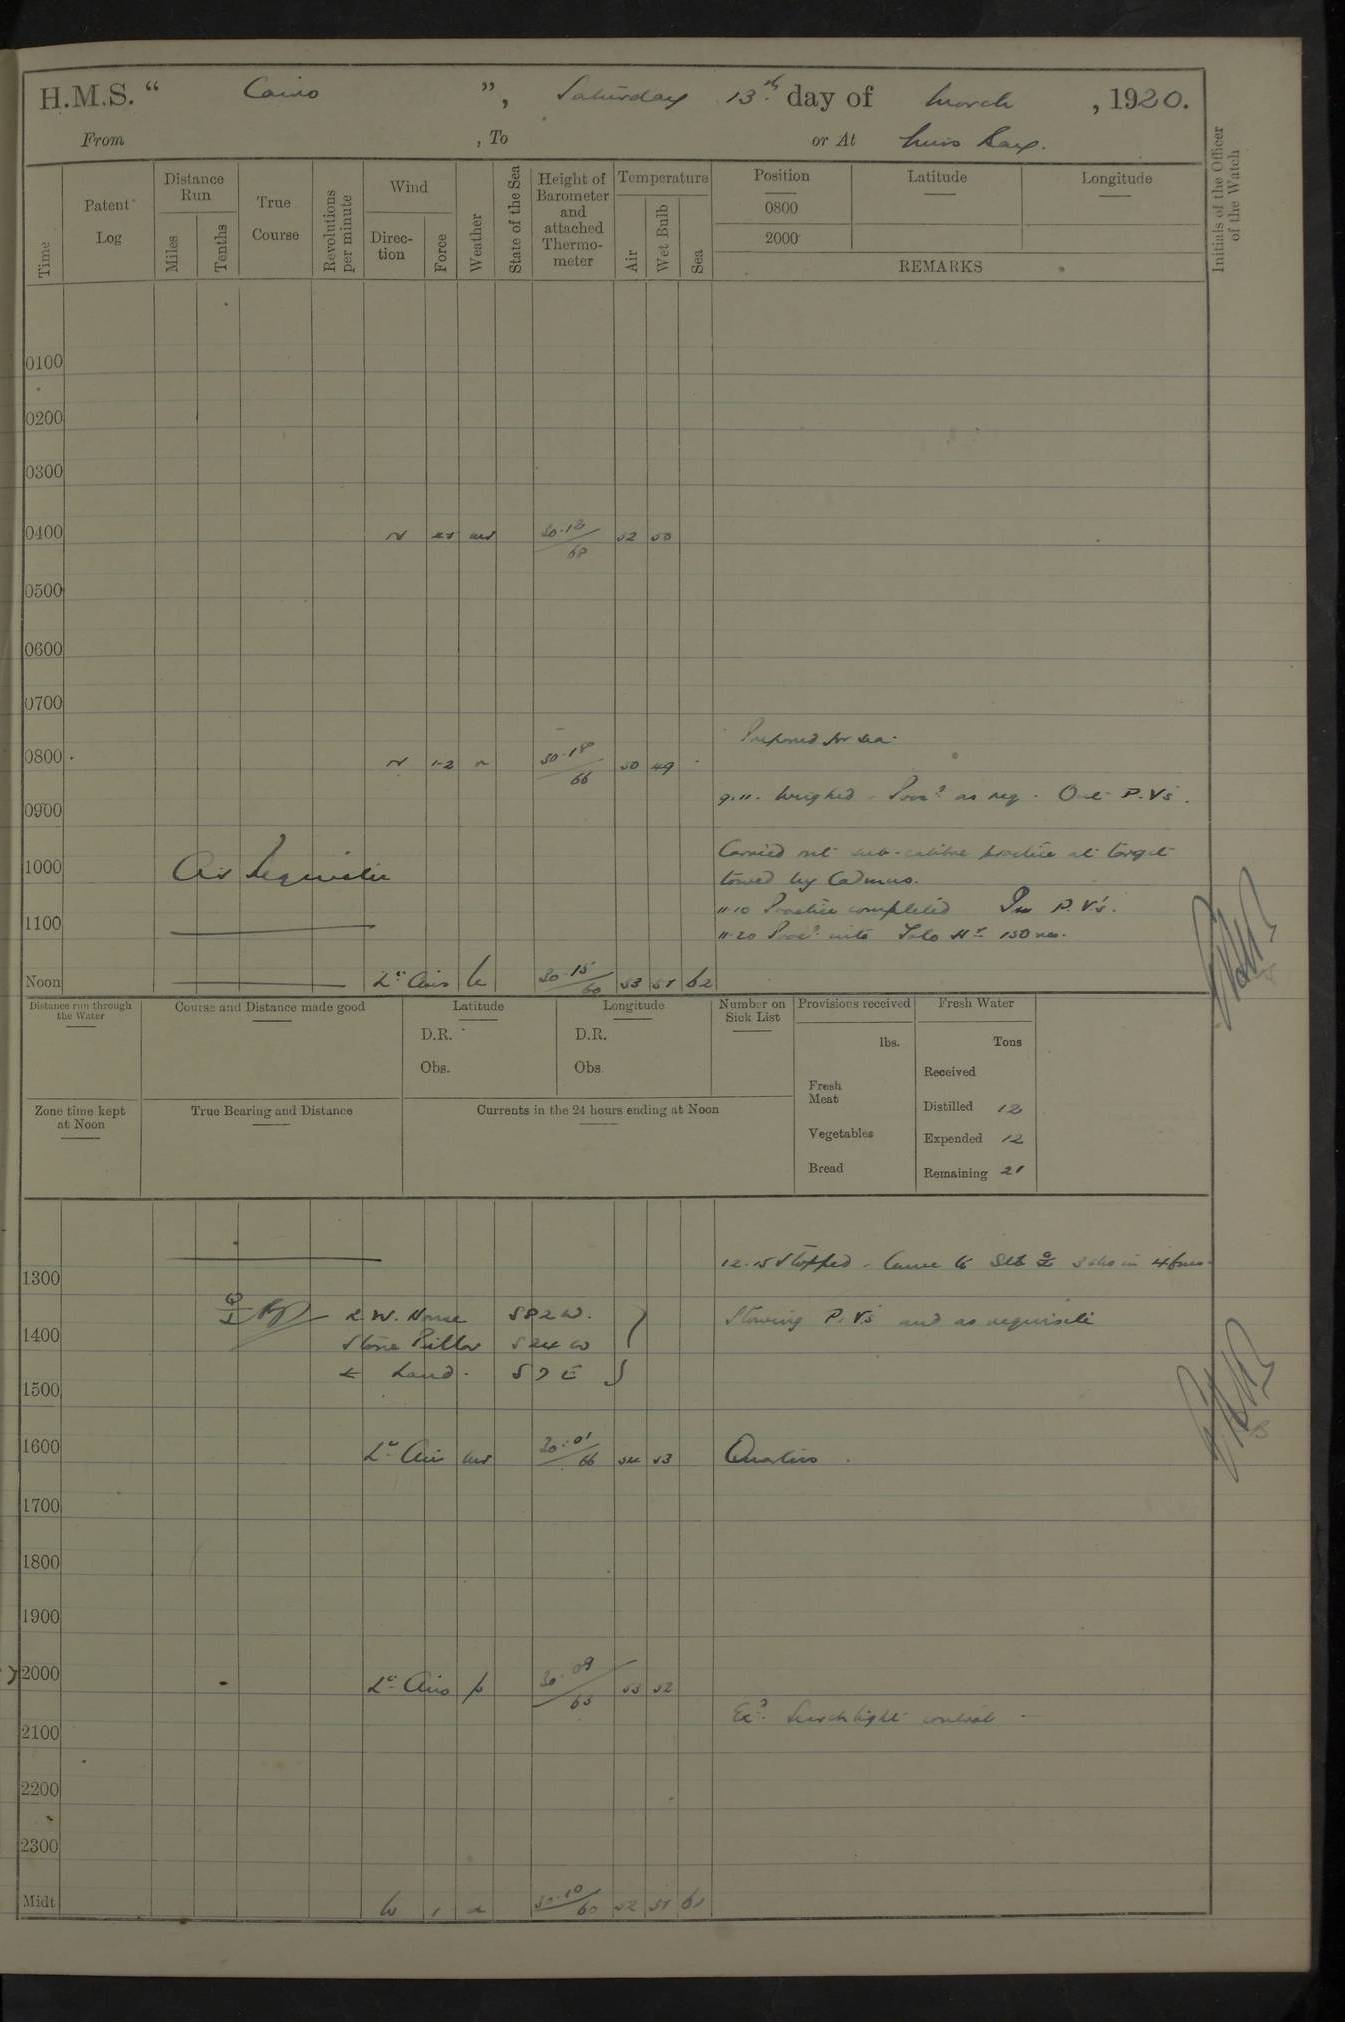 H.M.S. “ Cairo ”, Saturday 13th day of March, 1920.
From , To or At Bay.
Time
Patent Log
Distance Run
Miles
Tenths
True Course
Revolutions per minute
Wind
Direction
Force
Weather
State of the Sea
Height of Barometer and attached Thermometer
Temperature
Air
Wet Bulb
Sea
Position
0800
2000
Latitude
Longitude
REMARKS
Initials of the Officer of the Watch
0100
0200
0300
0400 N 30.18/68 52 50
0500
0600
0700
Prepared for sea.
0800 N 1-2 30.18/66 50 49
9.11. Weighed - Proc? as req. Out P.Vs.
0900
Carried out sub-calibre practice at target
1000 As Requisite
towed by Cadmus.
11.10 Practice completed In P.V's.
1100
11.20 Proc? into 150 revs.
Noon Lt Airs 30.15/60 53 51 62
Distance run through the Water
Course and Distance made good
Latitude
D.R.
Obs.
Longitude
D.R.
Obs.
Number on Sick List
Provisions received
lbs.
Fresh Meat
Vegetables
Bread
Fresh Water
Tons
Received
Distilled 12
Expended 12
Remaining 21
Zone time kept at Noon
True Bearing and Distance
Currents in the 24 hours ending at Noon
12.15 Stopped. Came to Stb 3 shs in 4 fms.
1300
L.W. House S 82 W.
Stowing P.Vs and as requisite
1400
Stone Pillar S 24 W
Land. S 7 E
1500
1600 Lt Airs 30.01/66 54 53 Quarters.
1700
1800
1900
2000 Lt Airs 30.09/65 53 52
Ex? Searchlight control
2100
2200
2300
Midt W 1 30.10/60 52 51 61